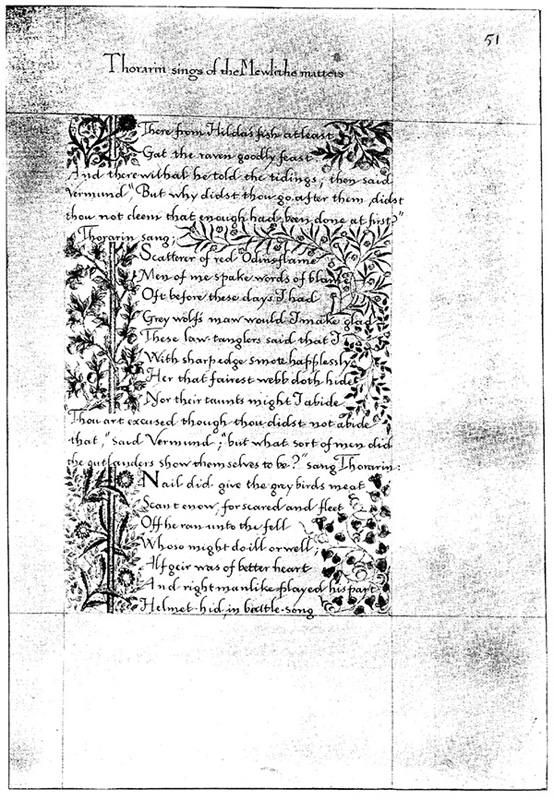 51
Thorarin sings of the Mewlithe matters
There from Hilda's fish at least
Gat the raven goodly feast
And therewithal he told the tidings; then said
Vermund, "But why didst thou go after them, didst
thou not deem that enough had been done at first?"
Thorarin sang;
Scatterer of red Odinsflame
Men of me spake words of blame
Oft before these days I had
Grey wolfs maw would I make glad
These law-tanglers said that I
With sharp edge smote haplessly
Her that fairest webb doth hide
Nor their taunts might I abide
Thou art excused though thou didst not abide
that," said Vermund; "but what sort of men did
the outlanders show themselves to be?" sang Thorarin:
Nail did give the grey birds meat
Scant enow, for scared and fleet
Off he ran unto the fell
Whoso might do ill or well;
Alfgeir was of better heart
And right manlike played his part
Helmet-hid in battle-song